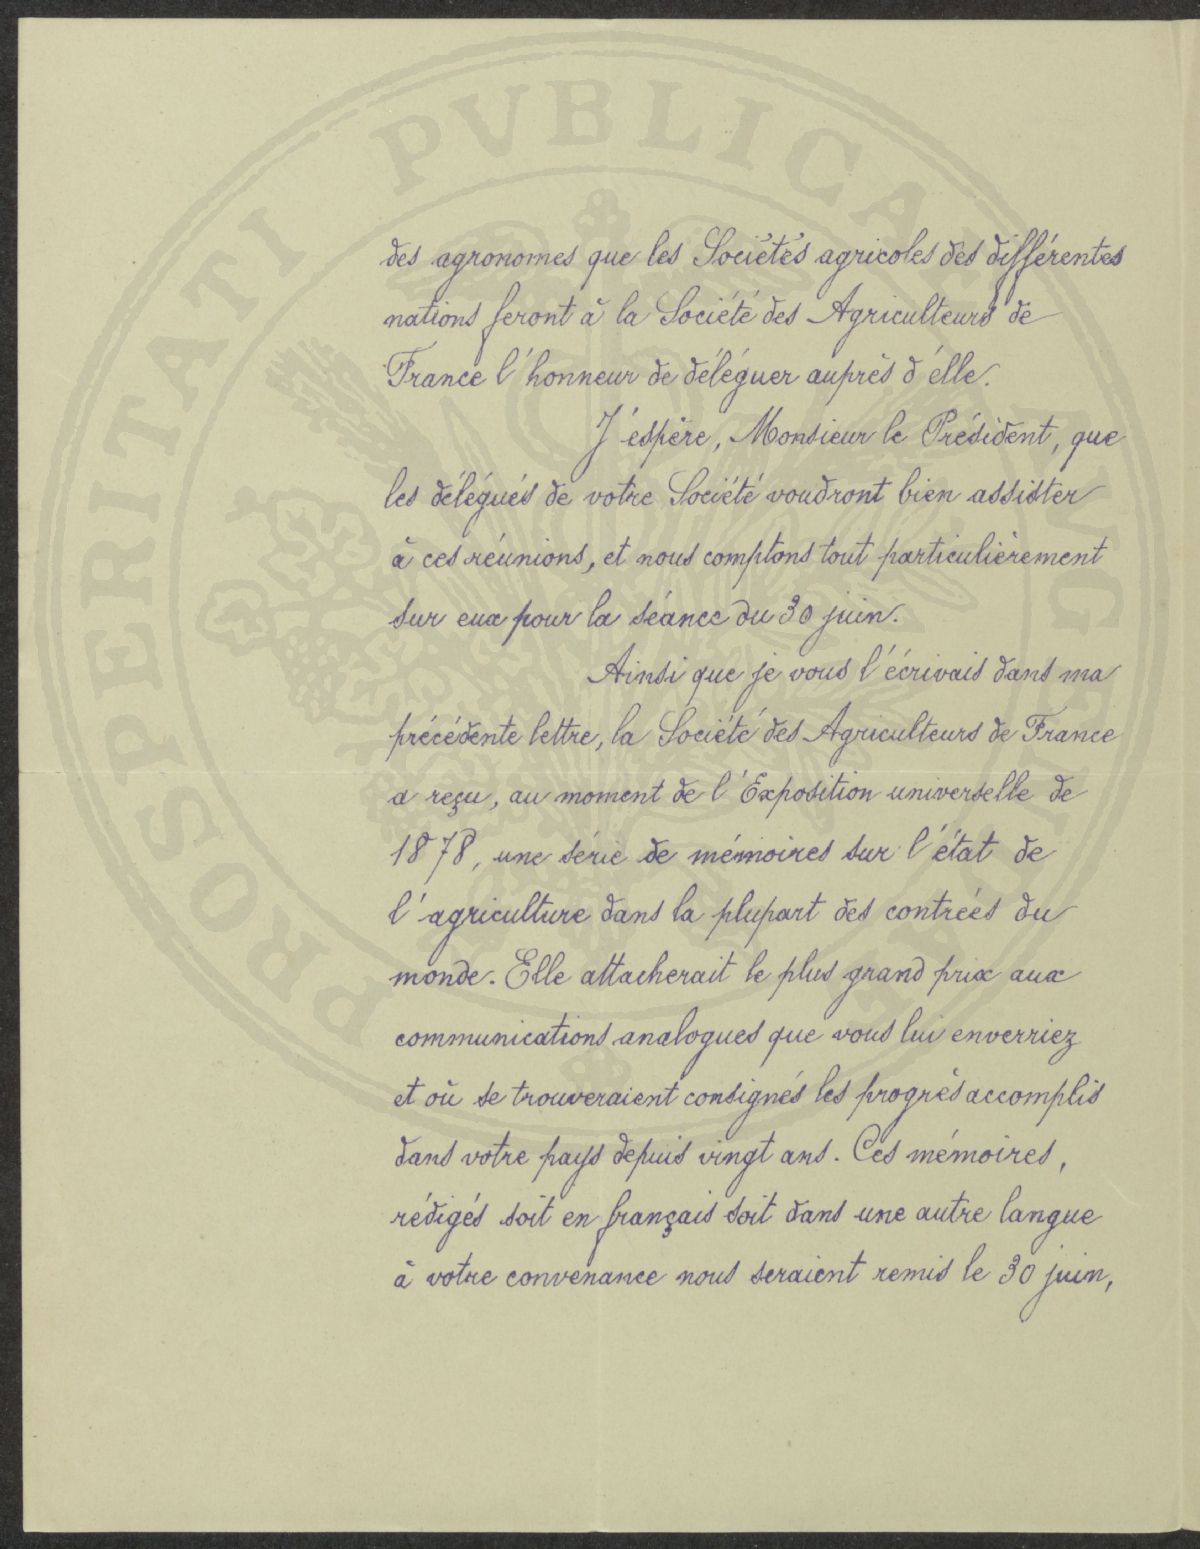 des agronomes que les Sociétés agricoles des différentes
nations feront à la Société des Agriculteurs de
France l'honneur de déléguer auprès d'elle.
J'espère, Monsieur le Président, que
les délégués de votre Société voudront bien assister
à ces réunions, et nous comptons tout particulièrement
sur eux pour la séance du 30 juin.
Ainsi que je vous l'écrivais dans ma
précédente lettre, la Société des Agriculteurs de France
a reçu, au moment de l'Exposition universelle de
1878, une série de mémoires sur l'état de
l'agriculture dans la plupart des contrées du
monde. Elle attacherait le plus grand prix aux
communications analogues que vous lui enverriez
et où se trouveraient consignés les progrès accomplis
dans votre pays depuis vingt ans. Ces mémoires,
rédigés soit en français soit dans une autre langue
à votre convenance nous seraient remis le 30 juin,
PROSPERITATI PVBLICAE AVG